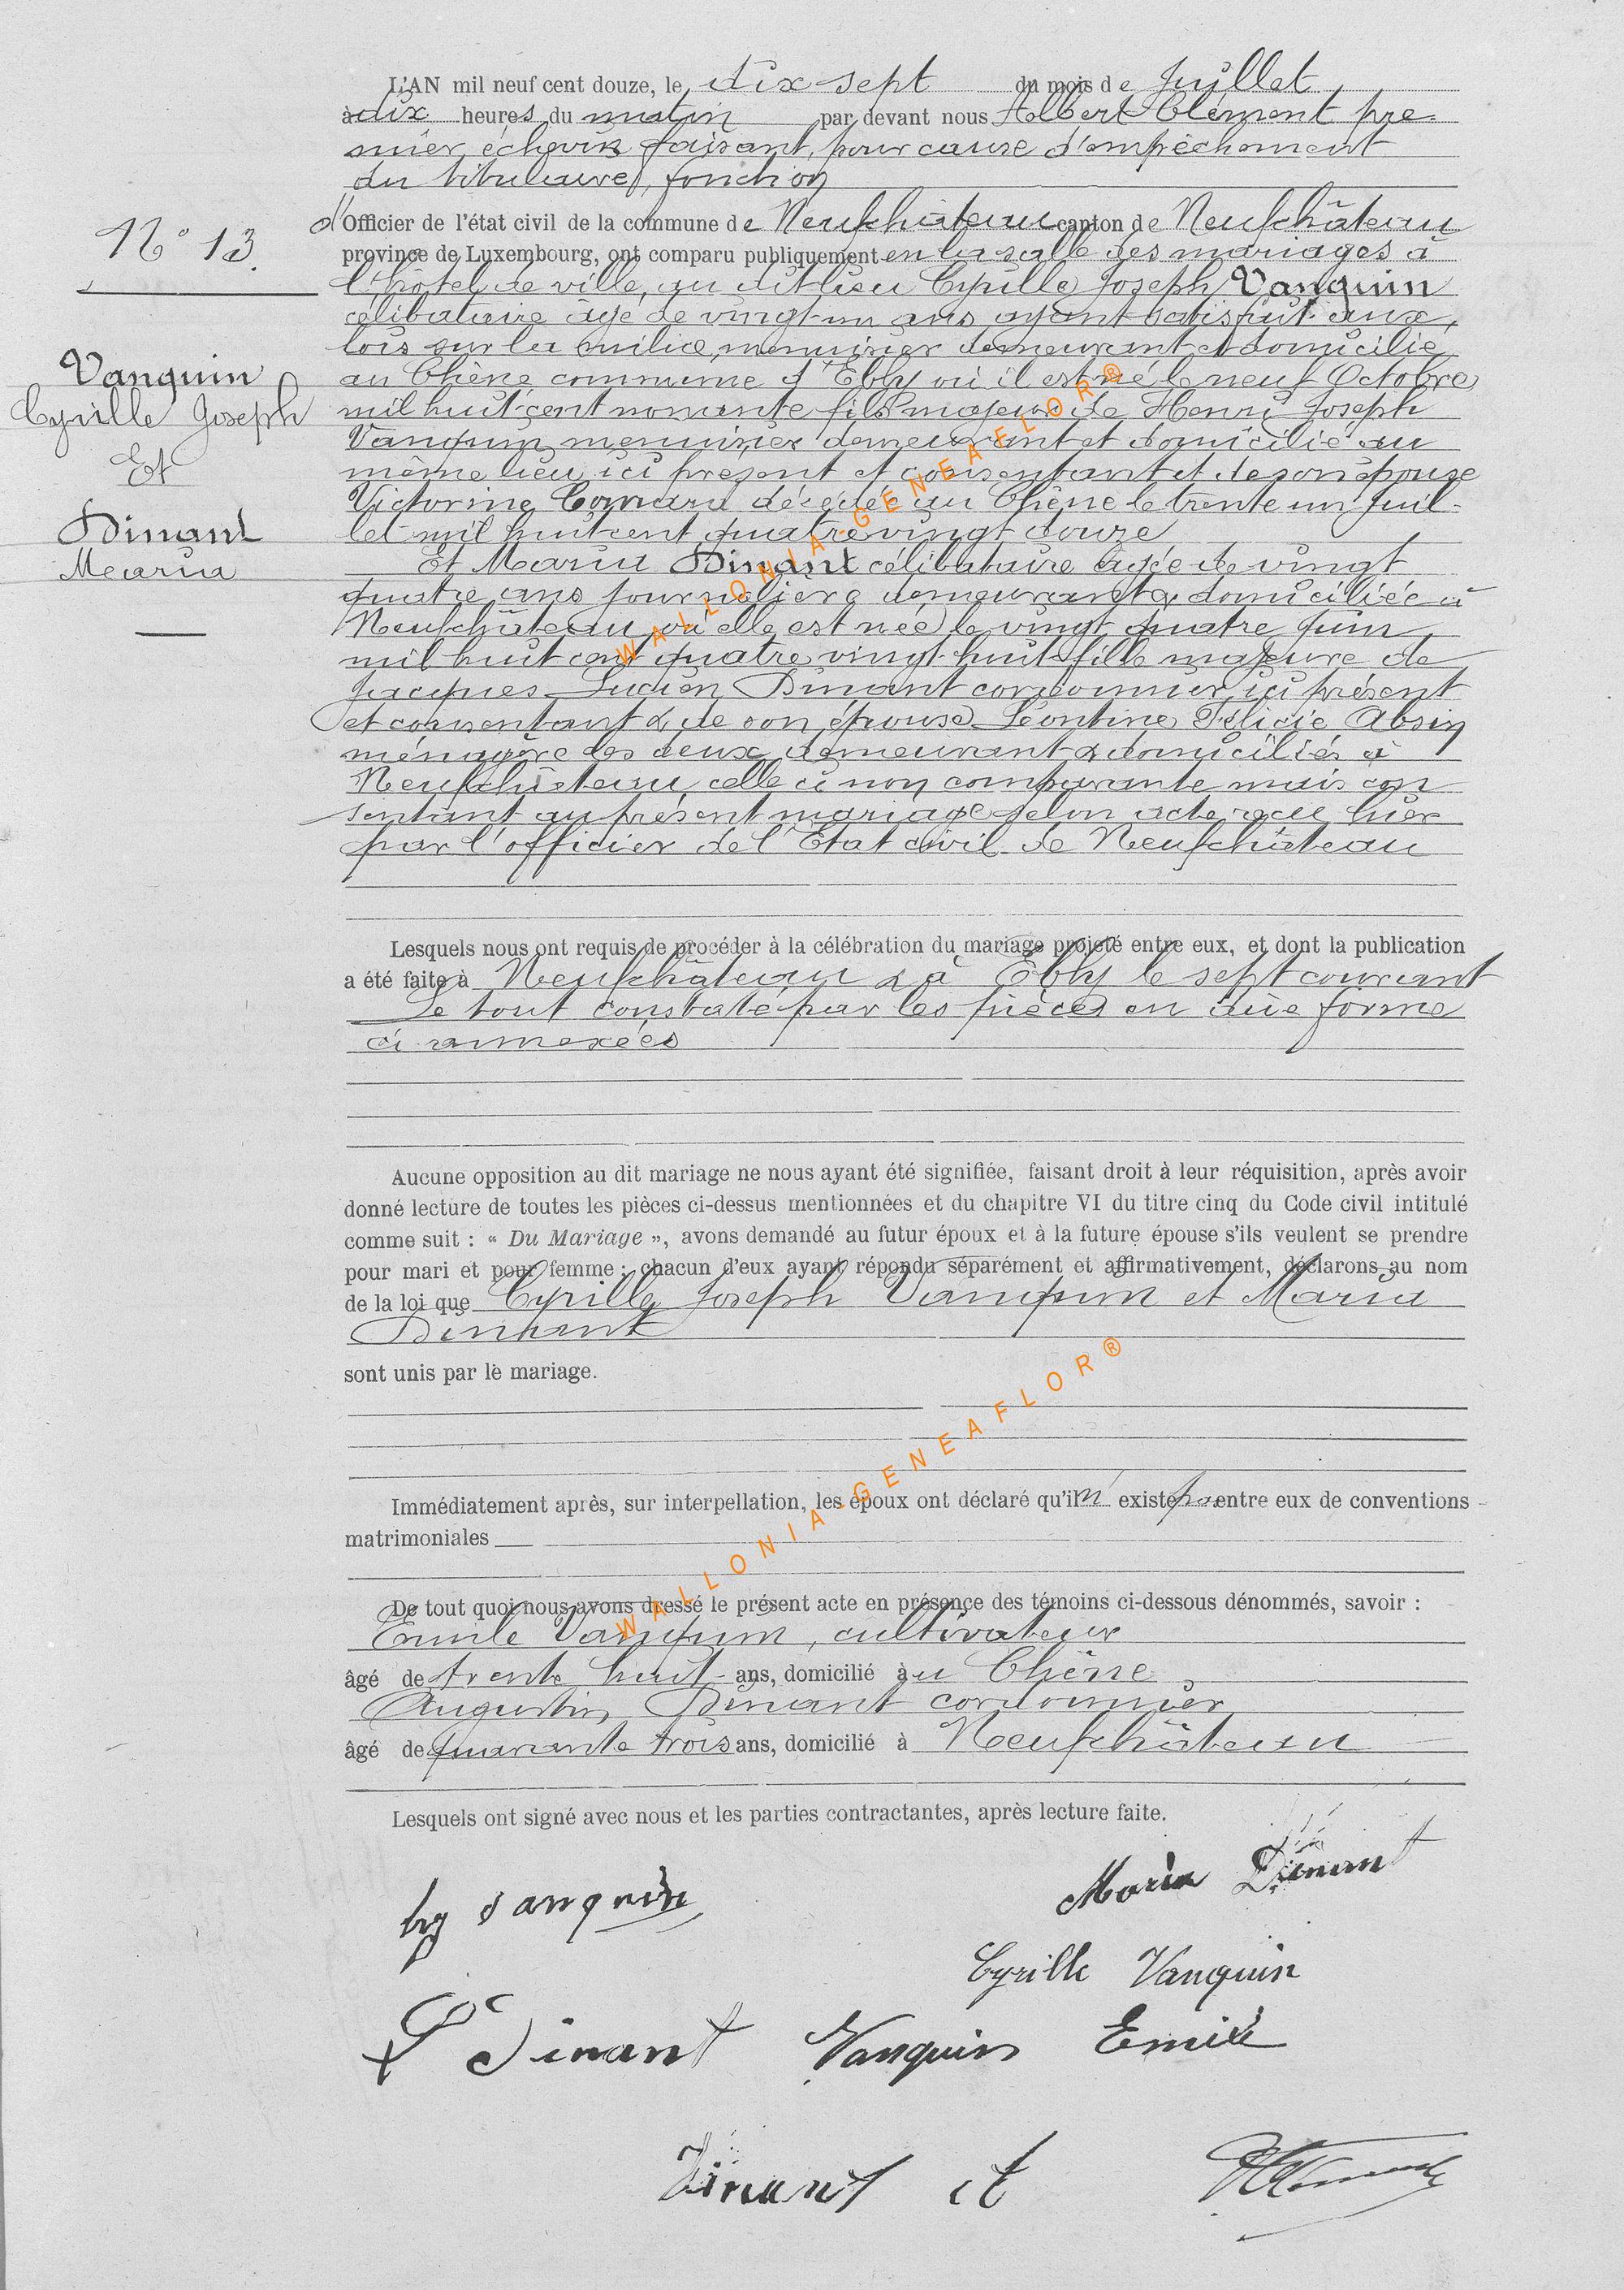 L'AN mil neuf cent douze, le dix-sept du mois de Juillet
à dix heures du matin par devant nous Albert Clément pre-
mier échevin faisant, pour cause d'empêchement
du titulaire, fonction
N° 13.
d'Officier de l'état civil de la commune de Neufchâteau canton de Neufchâteau
province de Luxembourg, ont comparu publiquement en la salle des mariages à
l'hôtel de ville, au dit lieu Cyrille Joseph Vanquin
célibataire âgé de vingt-un ans ayant satisfait aux
lois sur la milice, menuisier demeurant et domicilié
Vanquin
Cyrille Joseph
Et
Dinant
Maria
au Chêne commune d'Ebly où il est né le neuf Octobre
mil huit cent nonante fils majeur de Henri Joseph
Vanquin menuisier demeurant et domicilié au
même lieu, ici présent et consentant et de son épouse
Victorine décédée au Chêne le trente un juil-
let mil huit cent quatre vingt douze
Et Maria Dinant célibataire âgée de vingt
quatre ans journalière demeurant & domiciliée à
Neufchâteau où elle est née le vingt quatre juin
mil huit cent quatre vingt-huit fille majeure de
Jacques Lucien Dinant cordonnier, ici présent
et consentant & de son épouse Léontine Félicie Absin
ménagère les deux demeurant & domiciliés à
Neufchâteau, celle ci non comparante mais con
sentant au présent mariage selon acte reçu hier
par l'officier de l'Etat civil de Neufchâteau
Lesquels nous ont requis de procéder à la célébration du mariage projeté entre eux, et dont la publication
a été faite à Neufchâteau & à Ebly le sept courant
Le tout constaté par les pièces en due forme
ci annexées
Aucune opposition au dit mariage ne nous ayant été signifiée, faisant droit à leur réquisition, après avoir
donné lecture de toutes les pièces ci-dessus mentionnées et du chapitre VI du titre cinq du Code civil intitulé
comme suit : « Du Mariage », avons demandé au futur époux et à la future épouse s'ils veulent se prendre
pour mari et pour femme ; chacun d'eux ayant répondu séparément et affirmativement, déclarons au nom
de la loi que Cyrille Joseph Vanquin et Maria
Dinant
sont unis par le mariage.
Immédiatement après, sur interpellation, les époux ont déclaré qu'il n'existe pas entre eux de conventions
matrimoniales
De tout quoi nous avons dressé le présent acte en présence des témoins ci-dessous dénommés, savoir :
Emile Vanquin, cultivateur
âgé de trente huit ans, domicilié au Chêne
Augustin Dinant cordonnier
âgé de quarante trois ans, domicilié à Neufchâteau
Lesquels ont signé avec nous et les parties contractantes, après lecture faite.
Maria Dinant
Vanquin
Cyrille Vanquin
Dinant Vanquin Emile
Dinant
WALLONIA-GENEAFLOR®
WALLONIA-GENEAFLOR®